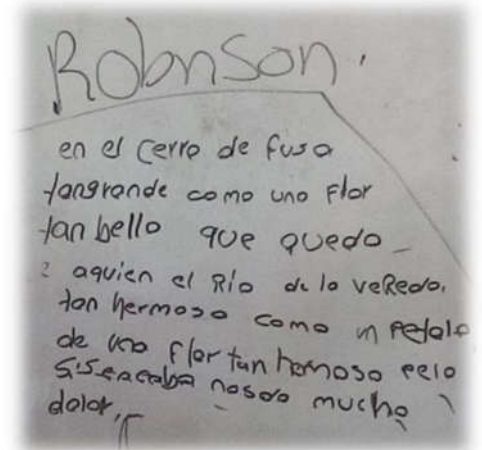 Robinson.
en el cerro de fusa
tangrande como una flor
tan bello que quedo
aquien el Rio de la veReda.
tan hermoso como un petalo
de una flor tan hermoso pero
si seacaba nosda mucho
dolor,